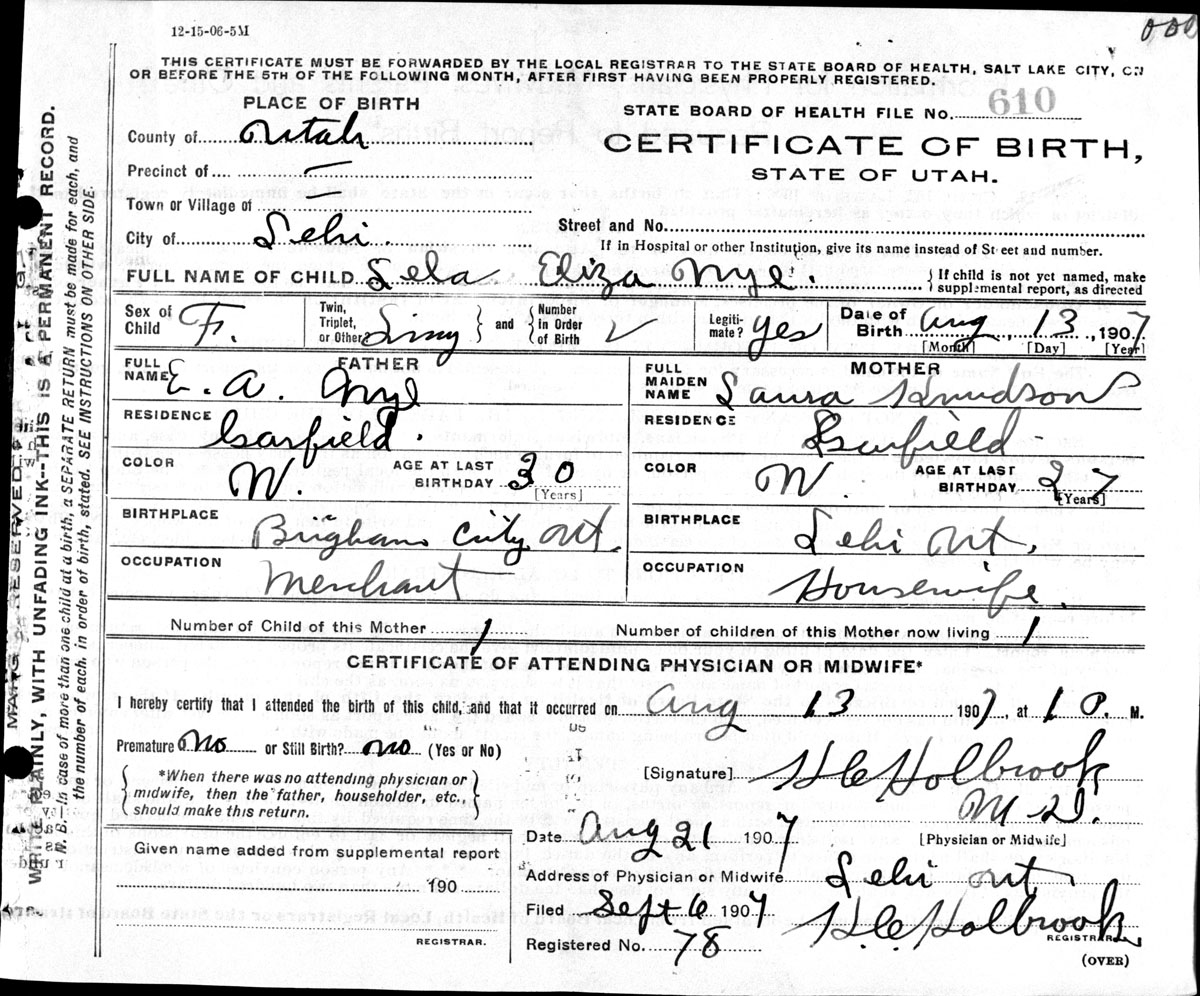 12-15-06-5M
THIS CERTIFICATE MUST BE FORWARDED BY THE LOCAL REGISTRAR TO THE STATE BOARD OF HEALTH, SALT LAKE CITY, ON
OR BEFORE THE 5TH OF THE FOLLOWING MONTH, AFTER FIRST HAVING BEEN PROPERLY REGISTERED.
PLACE OF BIRTH
County of Utah
Precinct of —
Town or Village of —
City of Lehi.
STATE BOARD OF HEALTH FILE No. 610
CERTIFICATE OF BIRTH,
STATE OF UTAH.
Street and No.
If in Hospital or other Institution, give its name instead of Street and number.
FULL NAME OF CHILD Lela Eliza Nye. { If child is not yet named, make
supplemental report, as directed
Sex of Child F. Twin, Triplet, or Other } and { Number in Order of Birth Legitimate? yes Date of Birth Aug 13, 1907
[Month] [Day] [Year]
FATHER
FULL NAME E. A. Nye
RESIDENCE Garfield.
COLOR W. AGE AT LAST BIRTHDAY 30
[Years]
BIRTHPLACE Brigham City Ut.
OCCUPATION Merchant
MOTHER
FULL MAIDEN NAME Laura Knudson
RESIDENCE Garfield
COLOR W. AGE AT LAST BIRTHDAY 27
[Years]
BIRTHPLACE Lehi Ut.
OCCUPATION Housewife.
Number of Child of this Mother 1 Number of children of this Mother now living 1
CERTIFICATE OF ATTENDING PHYSICIAN OR MIDWIFE*
I hereby certify that I attended the birth of this child, and that it occurred on Aug 13 1907, at 1 P. M.
Premature? No or Still Birth? no (Yes or No)
{ *When there was no attending physician or
midwife, then the father, householder, etc.,
should make this return. }
[Signature] H C Holbrook
M D.
[Physician or Midwife]
Date Aug 21 1907
Given name added from supplemental report
190
REGISTRAR.
Address of Physician or Midwife Lehi Ut.
Filed Sept 6 1907 H. C. Holbrook
REGISTRAR.
Registered No. 78
(OVER)
MARGIN RESERVED
WRITE PLAINLY, WITH UNFADING INK--THIS IS A PERMANENT RECORD.
N. B. In case of more than one child at a birth, a SEPARATE RETURN must be made for each, and
the number of each, in order of birth, stated. SEE INSTRUCTIONS ON OTHER SIDE.